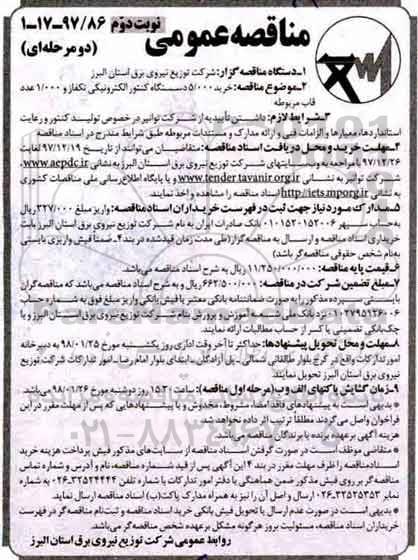 مناقصه عمومی
نوبت دوم ۹۷/۸۶-۱۷-۱
(دو مرحله‌ای)
۱-دستگاه مناقصه گزار: شرکت توزیع نیروی برق استان البرز
۲-موضوع مناقصه: خرید ۵/۰۰۰ دستگاه کنتور الکترونیکی تکفاز و ۱/۰۰۰ عدد
قاب مربوطه
۳-شرایط لازم: داشتن تأییدیه از شرکت توانیر در خصوص تولید کنتور و رعایت
استانداردها، معیارها و الزامات فنی و ارائه مدارک و مستندات مربوطه طبق شرایط مندرج در اسناد مناقصه
۴-مهلت خرید و محل دریافت اسناد مناقصه: متقاضیان می‌توانند از تاریخ ۹۷/۱۲/۱۹ لغایت
۹۷/۱۲/۲۶ با مراجعه به وب سایتهای شرکت توزیع نیروی برق استان البرز به نشانی www.aepdc.ir،
شرکت توانیر به نشانی www.tender.tavanir.org.ir و یا پایگاه اطلاع‌رسانی ملی مناقصات کشوری
به نشانی http://iets.mporg.ir اسناد مناقصه را مشاهده و اخذ نمایند.
۵-مدارک مورد نیاز جهت ثبت در فهرست خریداران اسناد مناقصه: واریز مبلغ ۳۲۷/۰۰۰ ریال
به حساب سپهر ۰۱۰۱۵۲۰۱۵۲۰۰۶ بانک صادرات ایران به نام شرکت توزیع نیروی برق استان البرز بابت
خریداری اسناد مناقصه و ارسال به مناقصه گزار (طی مدت زمان قید شده در بند ۴. ضمناً فیش واریزی بایستی
به نام شخص حقوقی مناقصه گر باشد)
۶-قیمت پایه مناقصه: ۱۱/۲۵۰/۰۰۰/۰۰۰ ریال به شرح اسناد مناقصه می‌باشد.
۷-مبلغ تضمین شرکت در مناقصه: ۶۶۲/۵۰۰/۰۰۰ ریال و به شرح اسناد مناقصه می‌باشد که مناقصه گران
بایستی سپرده مذکور را به صورت ضمانتنامه بانکی معتبر یا فیش بانکی واریز مبلغ فوق به شماره حساب
۰۱۰۲۷۹۵۱۲۶۰۰۶ نزد بانک ملی شعبه آموزش و پرورش بنام شرکت توزیع نیروی برق استان البرز و یا
چک بانکی تضمینی یا کسر از حساب مطالبات ارائه نمایند.
۸-مهلت و محل تحویل پیشنهادها: حداکثر تا آخر وقت اداری روز یکشنبه مورخ ۹۸/۰۱/۲۵ به دبیرخانه
امور تدارکات واقع در کرج بلوار طالقانی شمالی - پل آزادگان - ابتدای بلوار امام رضا - امور تدارکات شرکت توزیع
نیروی برق استان البرز تحویل نمایند.
۹-زمان گشایش پاکتهای الف و ب (مرحله اول مناقصه): ساعت ۱۵:۳۰ روز دوشنبه مورخ ۹۸/۰۱/۲۶ می‌باشد.
* بدیهی است به پیشنهادهای فاقد امضاء، مشروط، مخدوش و یا پیشنهادهایی که پس از مهلت مقرر در این
فراخوان واصل می‌گردند مطلقاً ترتیب اثر داده نخواهد شد.
هزینه آگهی بر عهده برنده یا برندگان مناقصه می‌باشد.
* متقاضی موظف است در صورت گرفتن اسناد مناقصه از سایت‌های مذکور فیش پرداخت هزینه خرید
اسناد مناقصه را ظرف مهلت مقرر در بند ۴ این آگهی پس از قید شماره مناقصه، نام و آدرس و شماره تماس
مناقصه گر بر روی فیش مذکور ضمن هماهنگی با دفتر امور تدارکات با شماره تلفن ۳۲۵۲۴۴۴۴-۰۲۶ به شماره
نمابر ۳۲۵۲۵۳۵۳-۰۲۶ ارسال و اصل آن را نیز به همراه مدارک پاکت (ب) اسناد مناقصه ارسال نماید.
* بدیهی است در صورت عدم ارسال یا تحویل فیش بانکی خرید اسناد مناقصه و ثبت نام مناقصه گر در فهرست
خریداران اسناد مناقصه، مسئولیت بروز هر گونه مشکل بر عهده شخص مناقصه گر می‌باشد.
روابط عمومی شرکت توزیع نیروی برق استان البرز